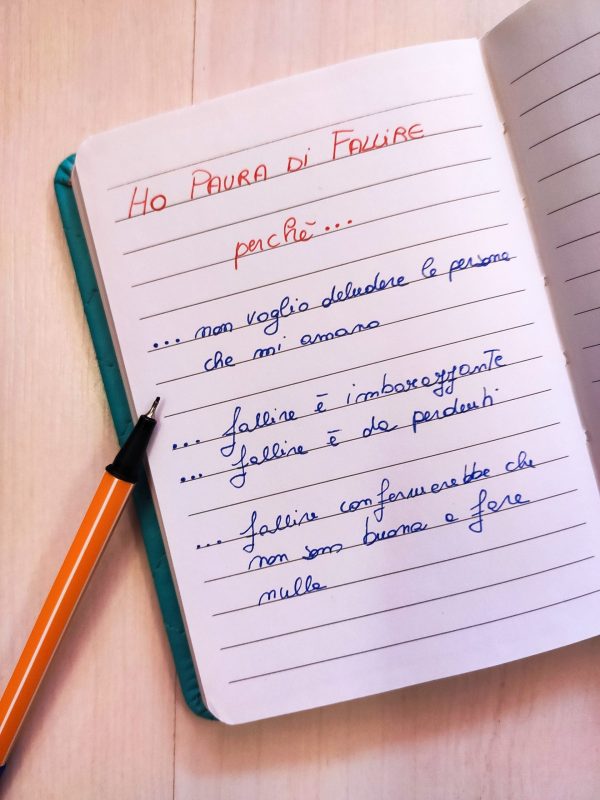 HO PAURA DI FALLIRE
perchè...
... non voglio deludere le persone
che mi amano
... fallire è imbarazzante
... fallire è da perdenti
... fallire confermerebbe che
non sono buona a fare
nulla